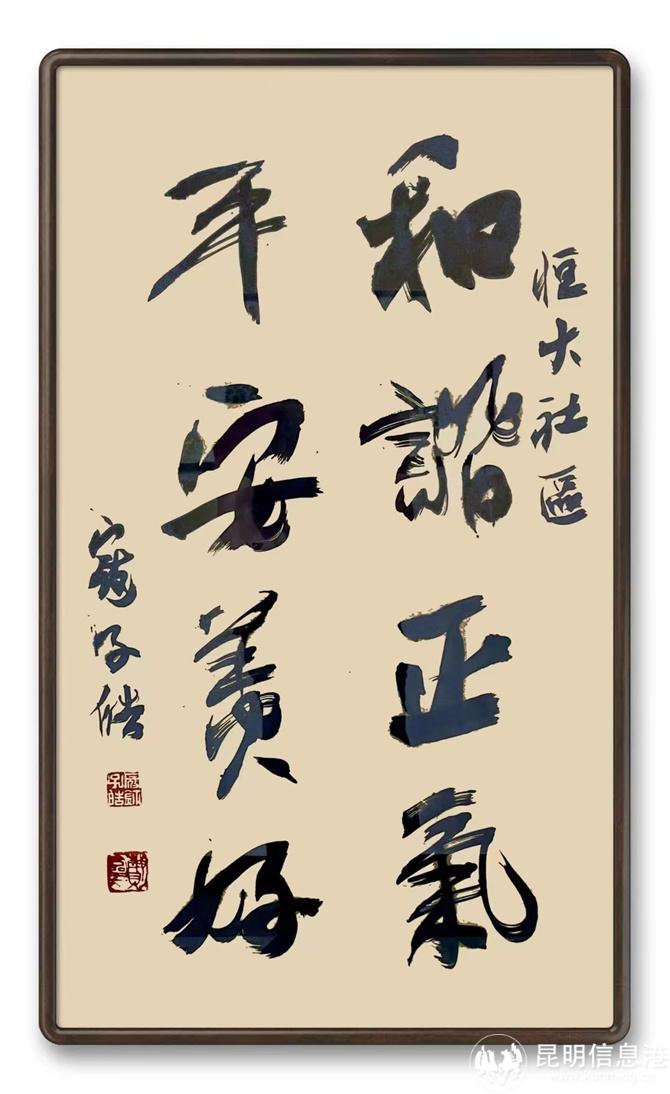 恒大社區
和諧正氣
平安美好
寇子皓
昆明信息港
www.kunming.cn